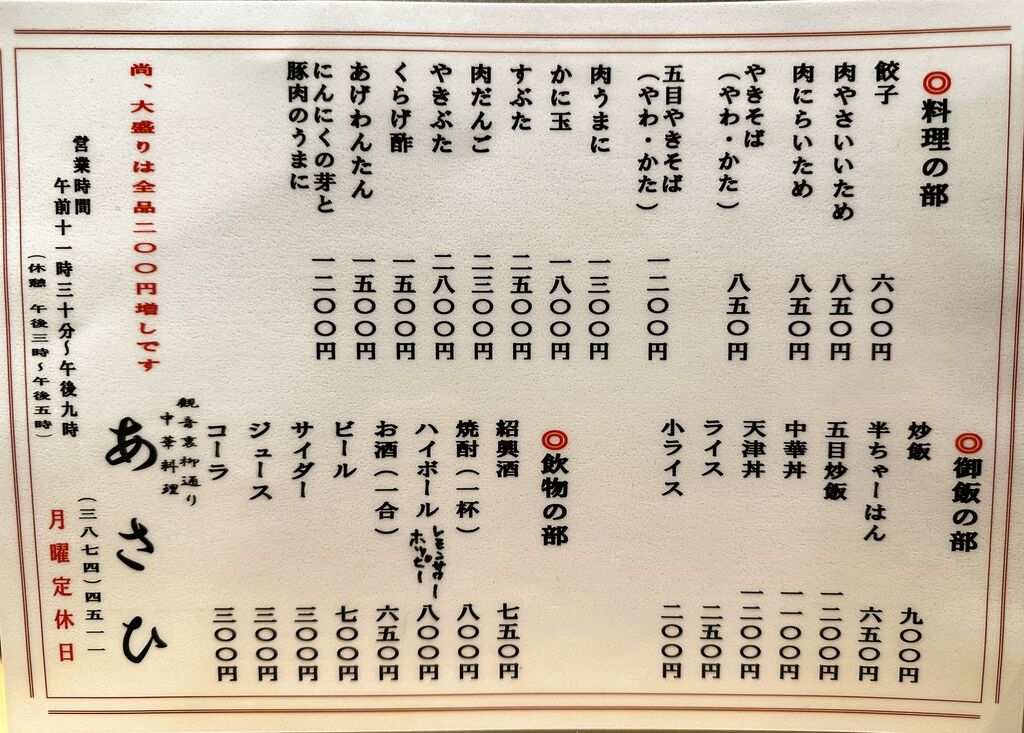 ◎料理の部
餃子　六〇〇円
肉やさいいため　八五〇円
肉にらいため　八五〇円
やきそば
（やわ・かた）　八五〇円
五目やきそば
（やわ・かた）　一二〇〇円
肉うまに　一三〇〇円
かに玉　一八〇〇円
すぶた　二五〇〇円
肉だんご　二三〇〇円
やきぶた　二八〇〇円
くらげ酢　一五〇〇円
あげわんたん　一五〇〇円
にんにくの芽と
豚肉のうまに　一二〇〇円
◎御飯の部
炒飯　九〇〇円
半ちゃーはん　六五〇円
五目炒飯　一二〇〇円
中華丼　一一〇〇円
天津丼　一二〇〇円
ライス　二五〇円
小ライス　二〇〇円
◎飲物の部
紹興酒　七五〇円
焼酎（一杯）　八〇〇円
ハイボール　レモンサワー　ホッピー　八〇〇円
お酒（一合）　六五〇円
ビール　七〇〇円
サイダー　三〇〇円
ジュース　三〇〇円
コーラ　三〇〇円
尚、大盛りは全品二〇〇円増しです
観音裏柳通り
中華料理
あさひ
（三八七四）四五一一
営業時間
午前十一時三十分〜午後九時
（休憩　午後三時〜午後五時）
月曜定休日